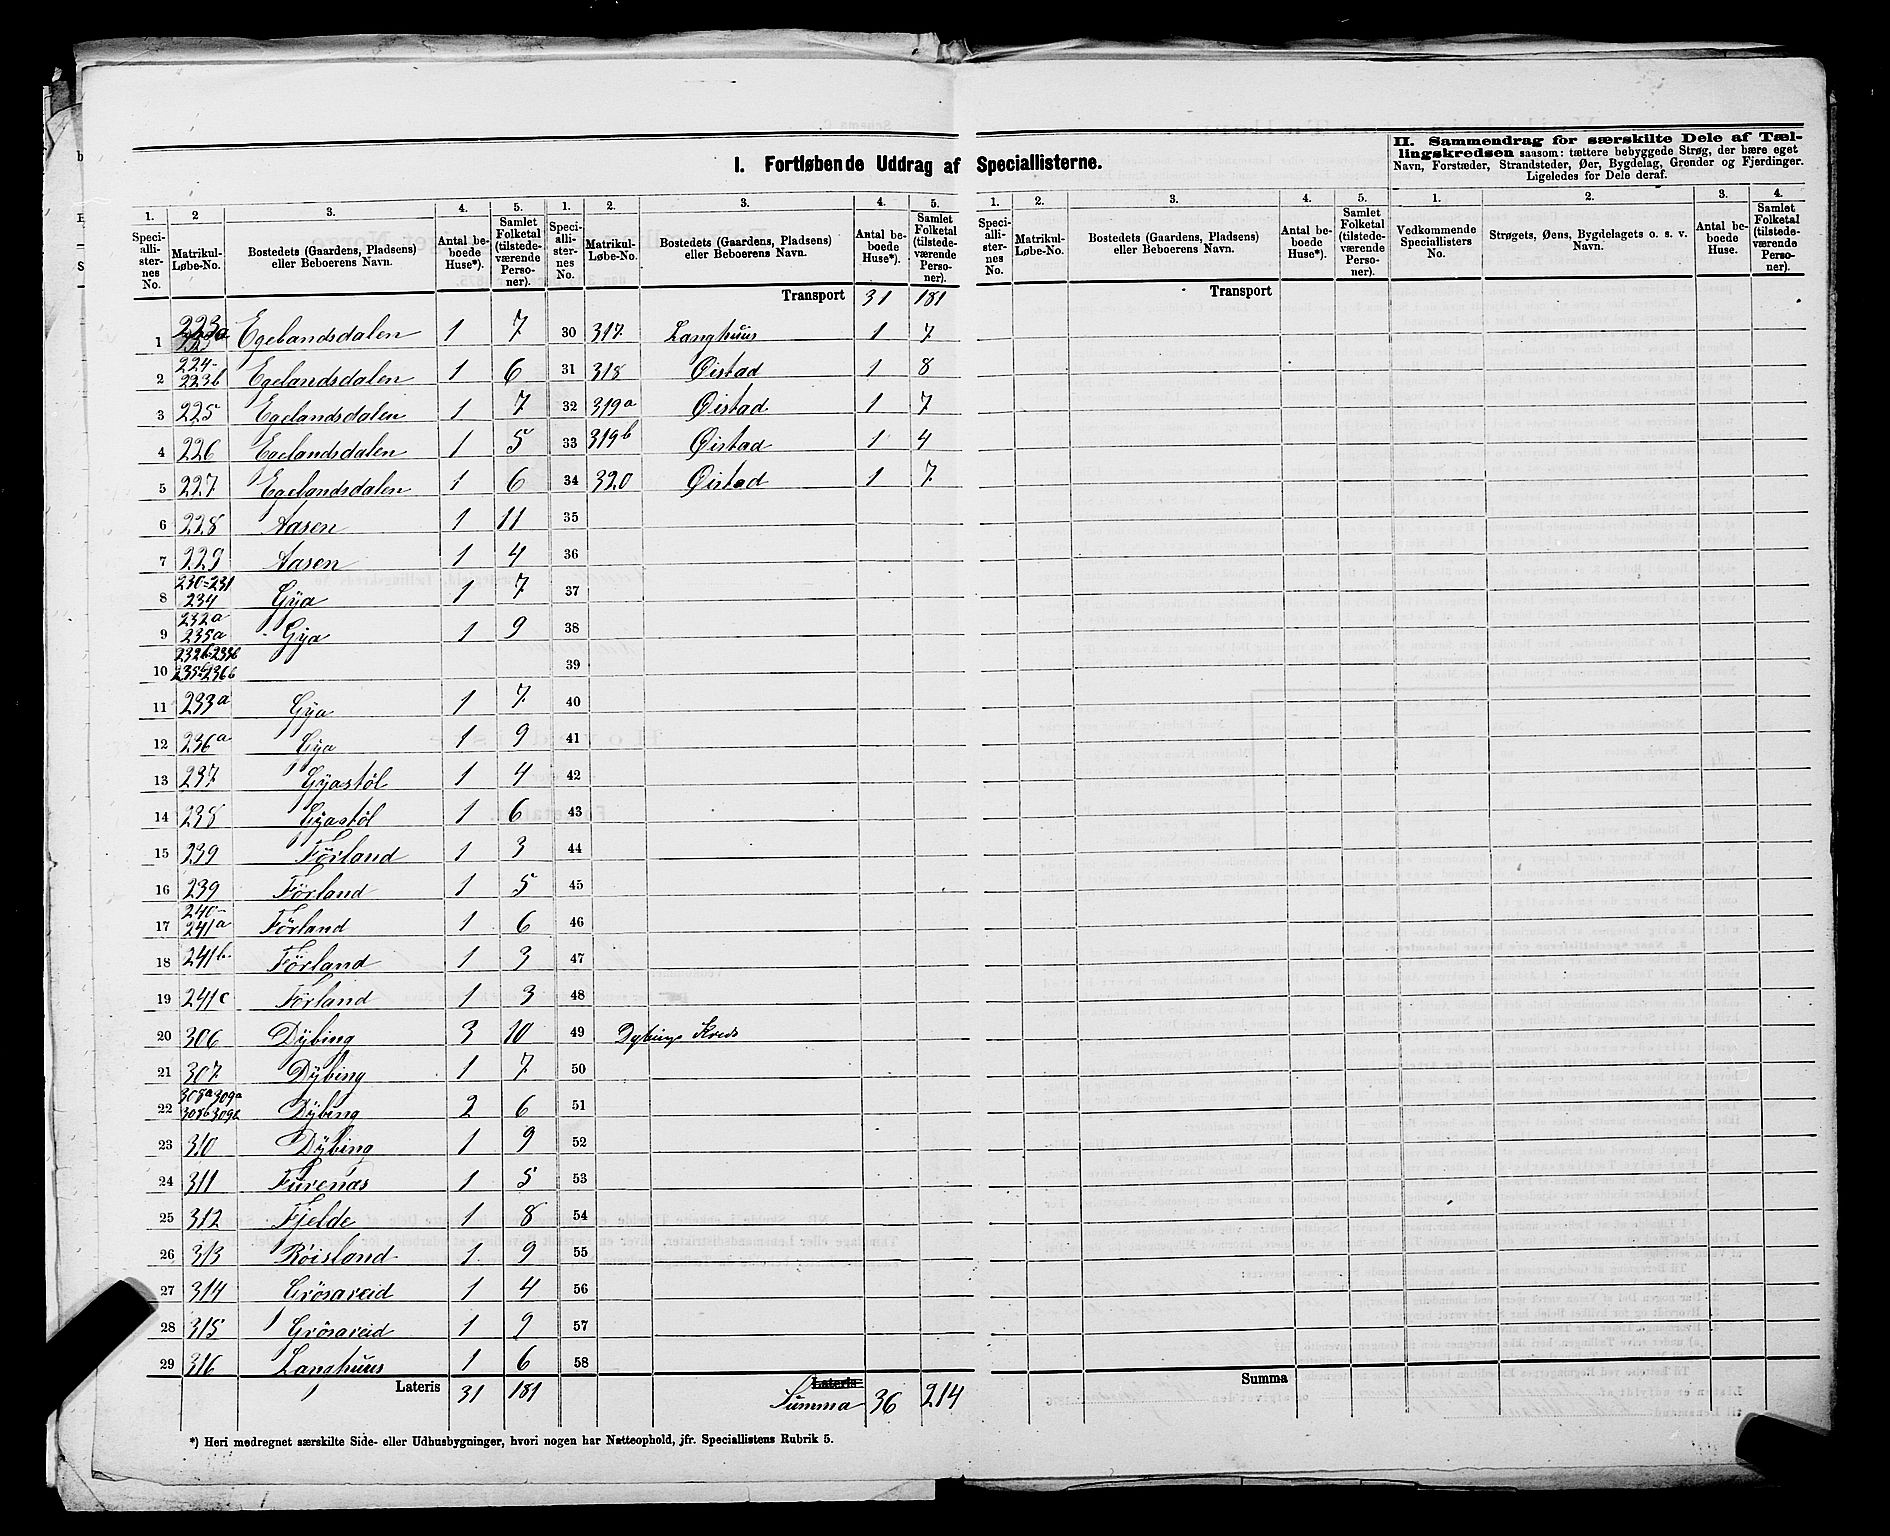 I. Fortløbende Uddrag af Speciallisterne.
II. Sammendrag for særskilte Dele af Tæl-
lingskredsen saasom: tættere bebyggede Strøg, der bære eget
Navn, Forstæder, Strandsteder, Øer, Bygdelag, Grender og Fjerdinger.
Ligeledes for Dele deraf.
1. 2 3. 4. 5. 1. 2. 3. 4. 5. 1. 2. 3. 4. 5. 1. 2. 3. 4.
Speci-alli-ster-nes No. Matrikul-Løbe-No. Bostedets (Gaardens, Pladsens) eller Beboerens Navn. Antal be-boede Huse*). Samlet Folketal (tilstede-værende Perso-ner).
Speci-alli-ster-nes No. Matrikul-Løbe-No. Bostedets (Gaardens, Pladsens) eller Beboerens Navn. Antal be-boede Huse*). Samlet Folketal (tilstede-værende Perso-ner).
Speci-alli-ster-nes No. Matrikul-Løbe-No. Bostedets (Gaardens, Pladsens) eller Beboerens Navn. Antal be-boede Huse*). Samlet Folketal (tilstede-værende Perso-ner).
Vedkommende Speciallisters No. Strøgets, Øens, Bygdelagets o. s. v. Navn. Antal be-boede Huse. Samlet Folketal (tilstede-værende Perso-ner).
Transport 31 181 Transport
1 223a Egelandsdalen 1 7 30 317 Langhuus 1 7
2 224-223b Egelandsdalen 1 6 31 318 Øistad 1 8
3 225 Egelandsdalen 1 7 32 319a Øistad 1 7
4 226 Egelandsdalen 1 5 33 319b Øistad 1 4
5 227 Egelandsdalen 1 6 34 320 Øistad 1 7
6 228 Aasen 1 11 35
7 229 Aasen 1 4 36
8 230-231 234 Gÿa 1 7 37
9 232a 235a Gÿa 1 9 38
10 232b-233b 235b-236b 39
11 233a Gÿa 1 7 40
12 236a Gÿa 1 9 41
13 237 Gÿastøl 1 4 42
14 238 Gÿastøl 1 6 43
15 239 Förland 1 3 44
16 239 Förland 1 5 45
17 240-241a Förland 1 6 46
18 241b Förland 1 3 47
19 241c Förland 1 3 48
20 306 Dÿbing 3 10 49 Dybings Kreds
21 307 Dÿbing 1 7 50
22 308a 309a 308b 309b Dÿbing 2 6 51
23 310 Dÿbing 1 9 52
24 311 Furenæs 1 5 53
25 312 Fjelde 1 8 54
26 313 Röisland 1 9 55
27 314 Grösareid 1 4 56
28 315 Grösareid 1 9 57
29 316 Langhuus 1 6 58
Lateris 31 181 Lateris Summa 36 214 Summa
*) Heri medregnet særskilte Side- eller Udhusbygninger, hvori nogen har Natteophold, jfr. Speciallistens Rubrik 5.